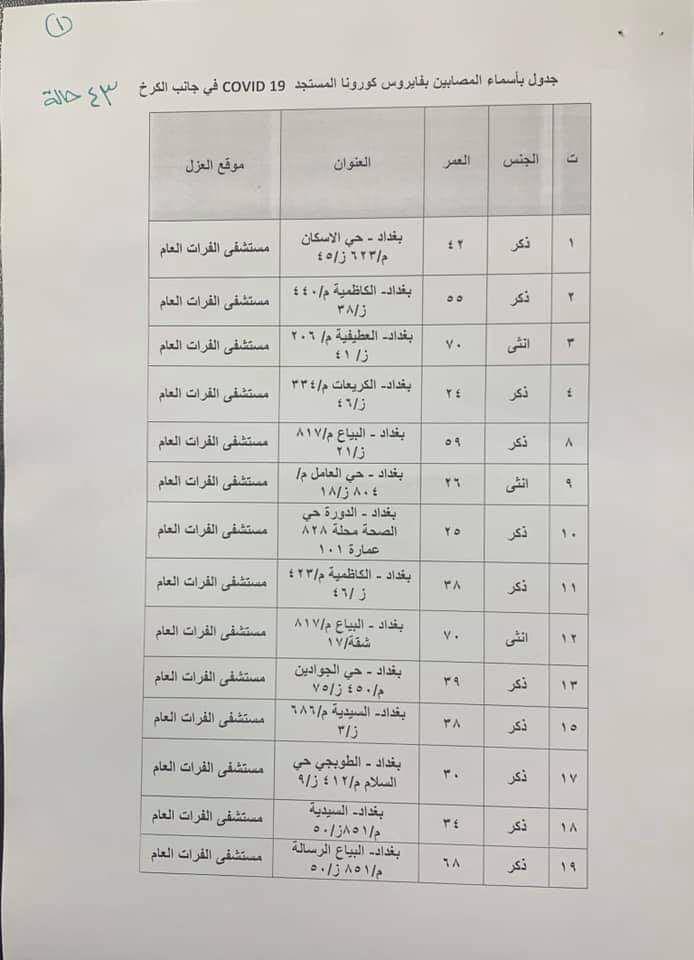 ١
جدول بأسماء المصابين بفايروس كورونا المستجد COVID 19 في جانب الكرخ
٤٣ حالة
ت الجنس العمر العنوان موقع العزل
١ ذكر ٤٢ بغداد - حي الاسكان م/٦٢٣ ز/٤٥ مستشفى الفرات العام
٢ ذكر ٥٥ بغداد- الكاظمية م/٤٤٠ ز/٣٨ مستشفى الفرات العام
٣ انثى ٧٠ بغداد- العطيفية م/ ٢٠٦ ز/ ٤١ مستشفى الفرات العام
٤ ذكر ٢٤ بغداد- الكريعات م/٣٣٤ ز/٤٦ مستشفى الفرات العام
٨ ذكر ٥٩ بغداد - البياع م/٨١٧ ز/٢١ مستشفى الفرات العام
٩ انثى ٢٦ بغداد - حي العامل م/ ٨٠٤ ز/١٨ مستشفى الفرات العام
١٠ ذكر ٢٥ بغداد - الدورة حي الصحة محلة ٨٢٨ عمارة ١٠١ مستشفى الفرات العام
١١ ذكر ٣٨ بغداد - الكاظمية م/٤٢٣ ز /٤٦ مستشفى الفرات العام
١٢ انثى ٧٠ بغداد - البياع م/٨١٧ شقة/١٧ مستشفى الفرات العام
١٣ ذكر ٣٩ بغداد - حي الجوادين م/٤٥٠ ز/٧٥ مستشفى الفرات العام
١٥ ذكر ٣٨ بغداد- السيدية م/٦٨٦ ز/٣ مستشفى الفرات العام
١٧ ذكر ٣٠ بغداد - الطوبجي حي السلام م/٤١٢ ز/٩ مستشفى الفرات العام
١٨ ذكر ٣٤ بغداد- السيدية م/٨٥١ز/٥٠ مستشفى الفرات العام
١٩ ذكر ٦٨ بغداد- البياع الرسالة م/٨٥١ ز/٥٠ مستشفى الفرات العام